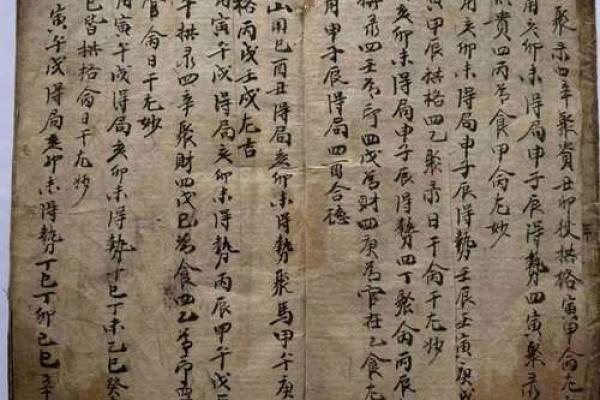 聚彔四辛聚貴丑卯拱格寅甲侖尤
用亥卯未得局申子辰得勢四寅聚彔
貴四丙為食甲侖尤妙
用亥卯未得局申子辰得勢壬辰壬寅庚戌
寅甲辰拱格四乙聚彔日干侖干尤妙
亥卯未得局申子辰得勢四丁聚侖丙辰
聚彔四壬為印四戊為財四庚為官在乙食尤
用申子辰得局四酉合德
山用巳酉丑得局亥卯未得勢聚馬甲午庚
格丙戌壬戌尤吉
用寅午戌得局亥卯未得勢丙辰甲午戊
午拱彔四辛聚財四戊巳為食四乙為印四
官侖日干尤妙
用寅午戌得局亥卯未得勢丁巳丁未乙巳癸
巳皆拱格侖日干尤妙
寅午戌得局亥卯未得勢丁巳丁卯巳巳辛